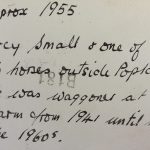 prox 1955
cy Small & one of
horses outside Popla
was waggoner at
arm from 1941 until
1960s.